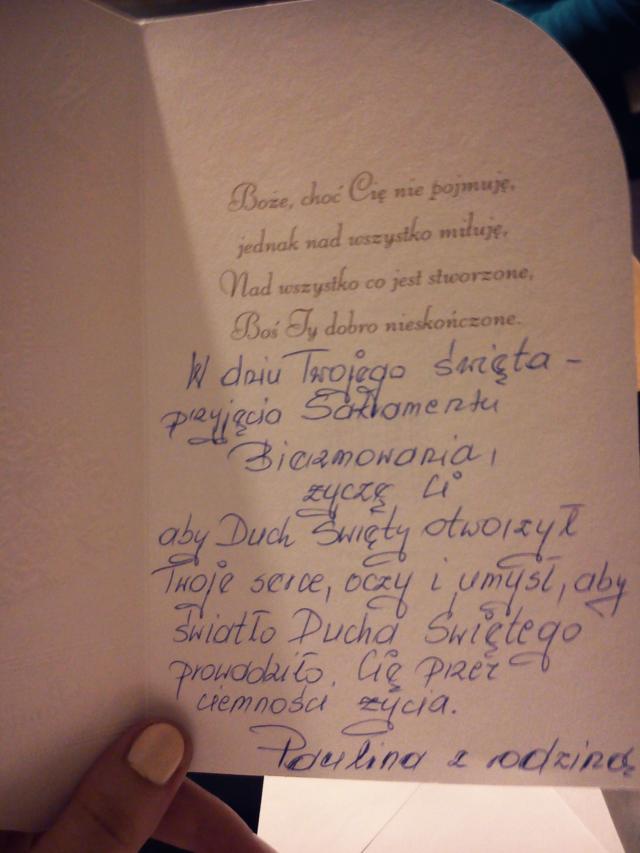 Boże, choć Cię nie pojmuję,
jednak nad wszystko miłuję,
Nad wszystko co jest stworzone,
Boś Ty dobro nieskończone.
W dniu Twojego święta –
przyjęcia Sakramentu
Bierzmowania,
życzę Ci
aby Duch Święty otworzył
Twoje serce, oczy i umysł, aby
światło Ducha Świętego
prowadziło Cię przez
ciemności życia.
Paulina z rodziną